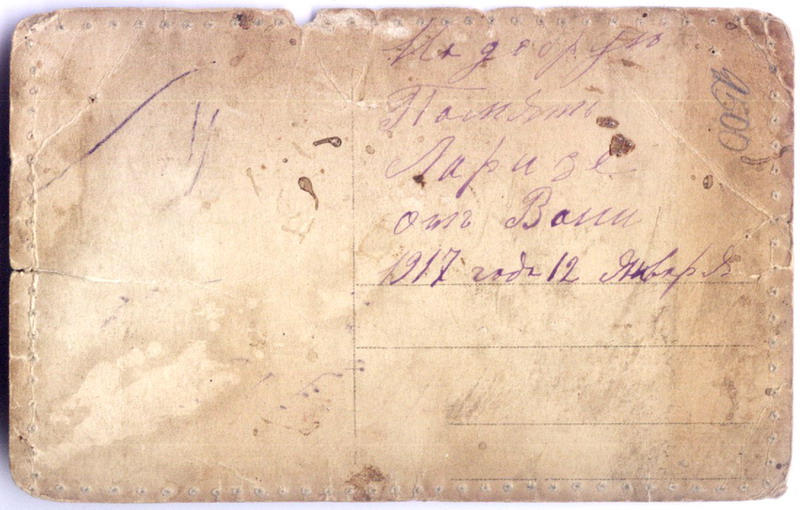 На добрую
Память
Ларисе
отъ Вани
1917 года 12 Января
1500